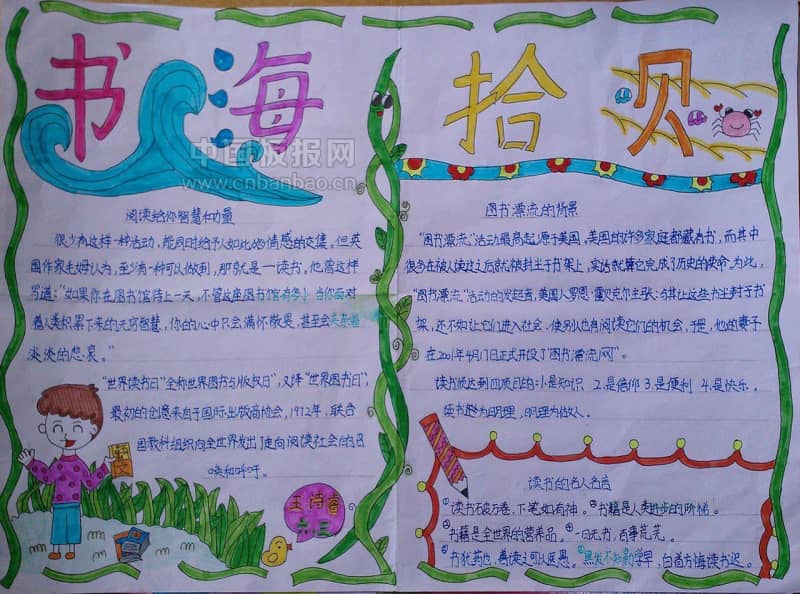 书海拾贝
中国板报网
www.cnbanbao.cn
阅读给你智慧和力量
很少有这样一种活动，能同时给予人如此的情感的交集。但英
国作家毛姆认为，至少有一种可以做到，那就是——读书，他曾这样
写道：“如果你在图书馆待上一天，不管这座图书馆有多小，当你面对
着人类积累下来的无穷智慧，你的心中只会满怀敬畏，甚至会夹杂着
淡淡的悲哀。”
“世界读书日”全称世界图书与版权日”，又译“世界图书日”，
最初的创意来自于国际出版商协会，1972年，联合
国教科组织向全世界发出了走向阅读社会的召
唤和呼吁。
王诗睿
六三
图书漂流的背景
“图书漂流”活动最高起源于美国，美国的许多家庭都藏有书，而其中
很多在被人读过之后就被封尘于书架上，实话就算它完成了历史的使命，为此，
“图书漂流”活动的发起者，美国人罗恩·霍贝克尔主张：与其让这些书尘封于书
架，还不如让它们进入社会，使别人也有阅读它们的机会，于是，他的妻子
在2001年4月17日正式开设了“图书漂流网”。
读书须达到四项目的：1.是知识 2.是信仰 3.是便利 4.是快乐。
读书是为明理，明理为做人。
读书的名人名言
①读书破万卷，下笔如有神。②书籍是人类进步的阶梯。
③书籍是全世界的营养品。④一日无书，百事荒芜。
⑤书犹药也，善读之可以医愚。⑥黑发不知勤学早，白首方悔读书迟。